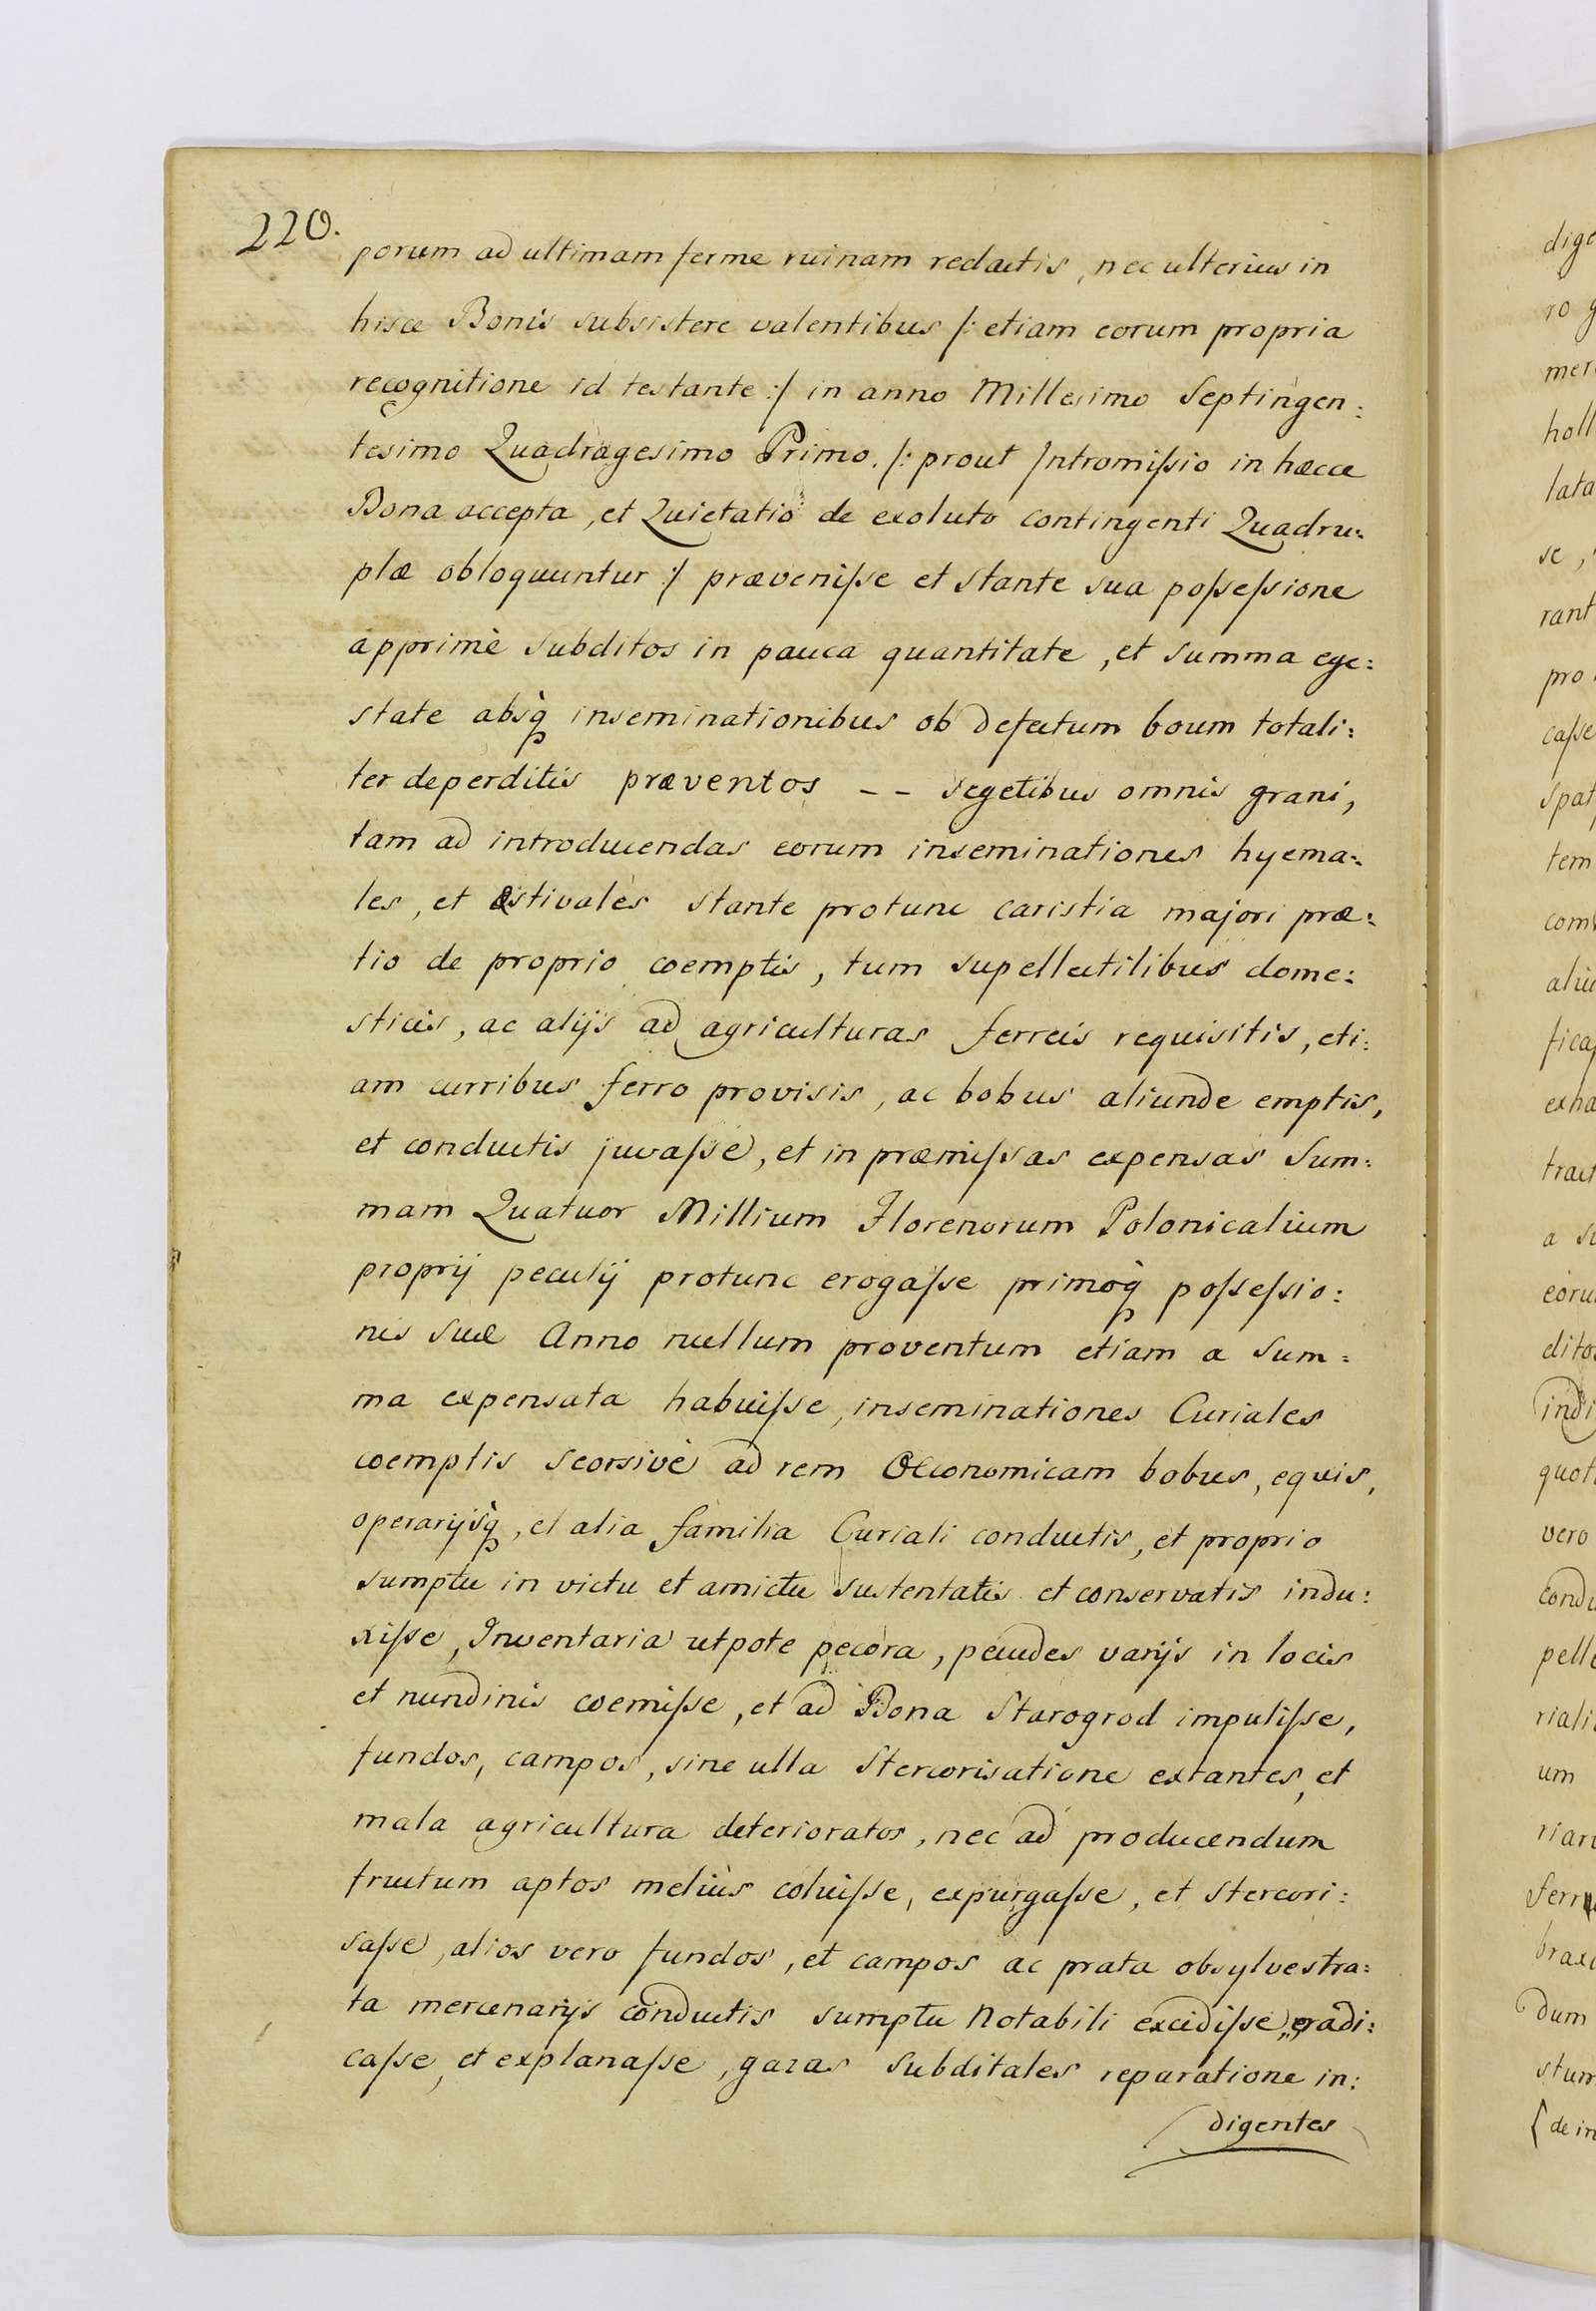 220.
porum ad ultimam ferme ruinam redactis, nec ulterius in
hisce Bonis subsistere valentibus /: etiam eorum propria
recognitione id testante :/ in anno Millesimo Septingen:
tesimo Quadragesimo Primo. /: prout Intromiſsio in hæcce
Bona accepta, et Quietatio de exoluto contingenti Quadru:
plæ obloquuntur :/ præveniſse et stante sua poſseſsione
apprimè subditos in pauca quantitate, et summa ege:
state absq̀ inseminationibus ob defectum boum totali:
ter deperditis præventos -- segetibus omnis grani,
tam ad introducendas eorum inseminationes hyema:
les, et æstivales stante protunc caristia majori præ:
tio de proprio coemptis, tum supellectilibus dome:
sticis, ac alijs ad agriculturas ferreis requisitis, eti:
am curribus ferro provisis, ac bobus aliunde emptis,
et conductis juvaſse, et in præmiſsas expensas Sum:
mam Quatuor Millium Florenorum Polonicalium
proprij peculij protunc erogaſse primoq̀ poſseſsio:
nis suæ Anno nullum proventum etiam a Sum:
ma expensata habuiſse, inseminationes Curiales
coemptis seorsivè ad rem Œconomicam bobus, equis,
operarijsq̀, et alia familia Curiali conductis, et proprio
sumptu in victu et amictu sustentatis et conservatis indu:
xiſse, Inventaria utpote pecora, pecudes varijs in locis
et nundinis coemiſse, et ad Bona Starogrod impuliſse,
fundos, campos, sine ulla Stercorisatione extantes, et
mala agricultura deterioratos, nec ad producendum
fructum aptos meliùs coluiſse, expurgaſse, et stercori:
saſse, alios vero fundos, et campos ac prata obsylvestra:
ta mercenarijs conductis sumptu notabili excidiſse, eradi:
caſse, et explanaſse, gazas subditales reparatione in:
digentes